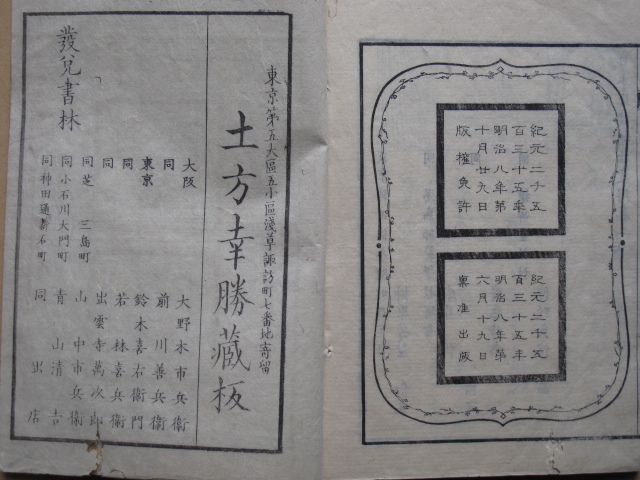 紀元二千五
百三十五年
明治八年第
十月廿九日
版権免許
紀元二千五
百三十五年
明治八年第
六月十九日
稟准出版
東京第五大區五小區淺草諏訪町七番地寄留
土方幸勝藏板
發兌書林
大阪 大野木市兵衛
同 前川善兵衛
東京 鈴木喜右衛門
同 若林喜兵衛
同 出雲寺萬次郎
同芝三島町 山中市兵衛
同小石川大門町 青山清吉
同神田通新石町 同出店